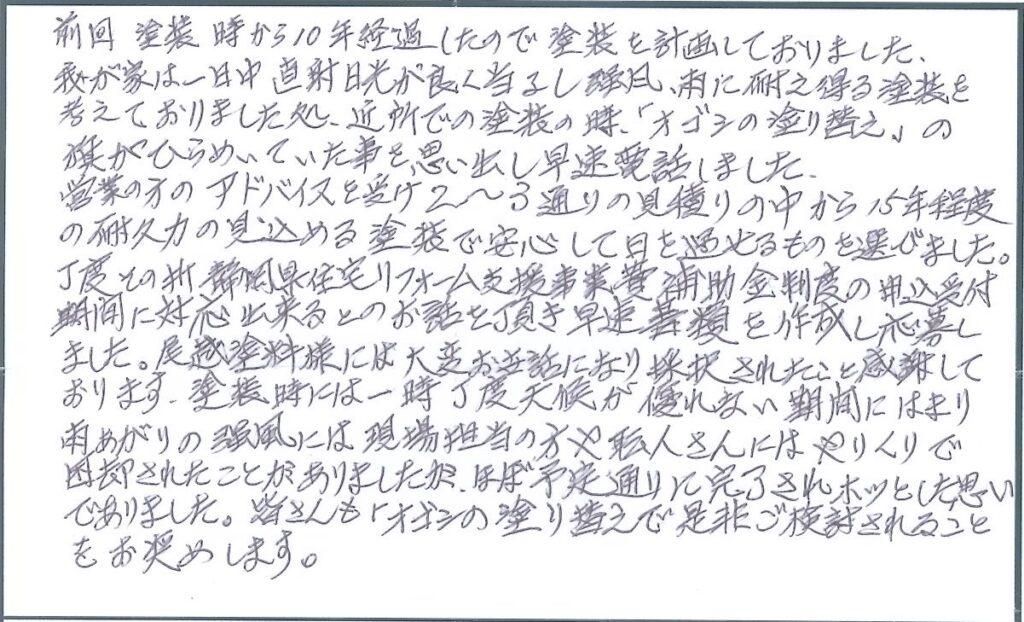 前回 塗装時から10年経過したので塗装を計画しておりました、
我が家は一日中直射日光が良く当るし強風、雨に耐え得る塗装を
考えておりました処、近所での塗装の時、「オゴシの塗り替え」の
旗がひらめいていた事を思い出し早速電話しました、
営業の方のアドバイスを受け2〜3通りの見積りの中から15年程度
の耐久力の見込める塗装で安心して日を過せるものを選びました。
丁度その折静岡県住宅リフォーム支援事業費補助金制度の申込受付
期間に対応出来るとのお話を頂き早速書類を作成し応募し
ました。尾越塗料様には大変お世話になり採択されたこと感謝して
おります、塗装時には一時丁度天候が優れない期間にはまり
雨あがりの強風には現場担当の方や職人さんにはやりくりで
困却されたことがありましたが、ほぼ予定通りに完了されホッとした思い
でありました。皆さんも「オゴシの塗り替えで是非ご検討されること
をお奨めします。